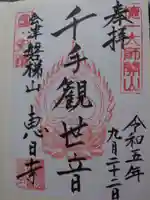 奉拝
徳一大師開山
令和五年
九月二十二日
千手観世音
会津磐梯山
恵日寺